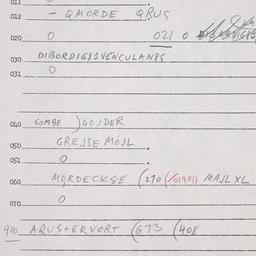 011
012 - QMORDE QRUS
020 0 021 0
030 DIBORDIG81VENCULAN8S
031 0
040 GOMBE ) GOJDER
050 GREJSE MOJL
051 0
060 MORDECKSE (270 (/019011 MAJLXL
070 0
900 ARUS+ERVORT (673 (408